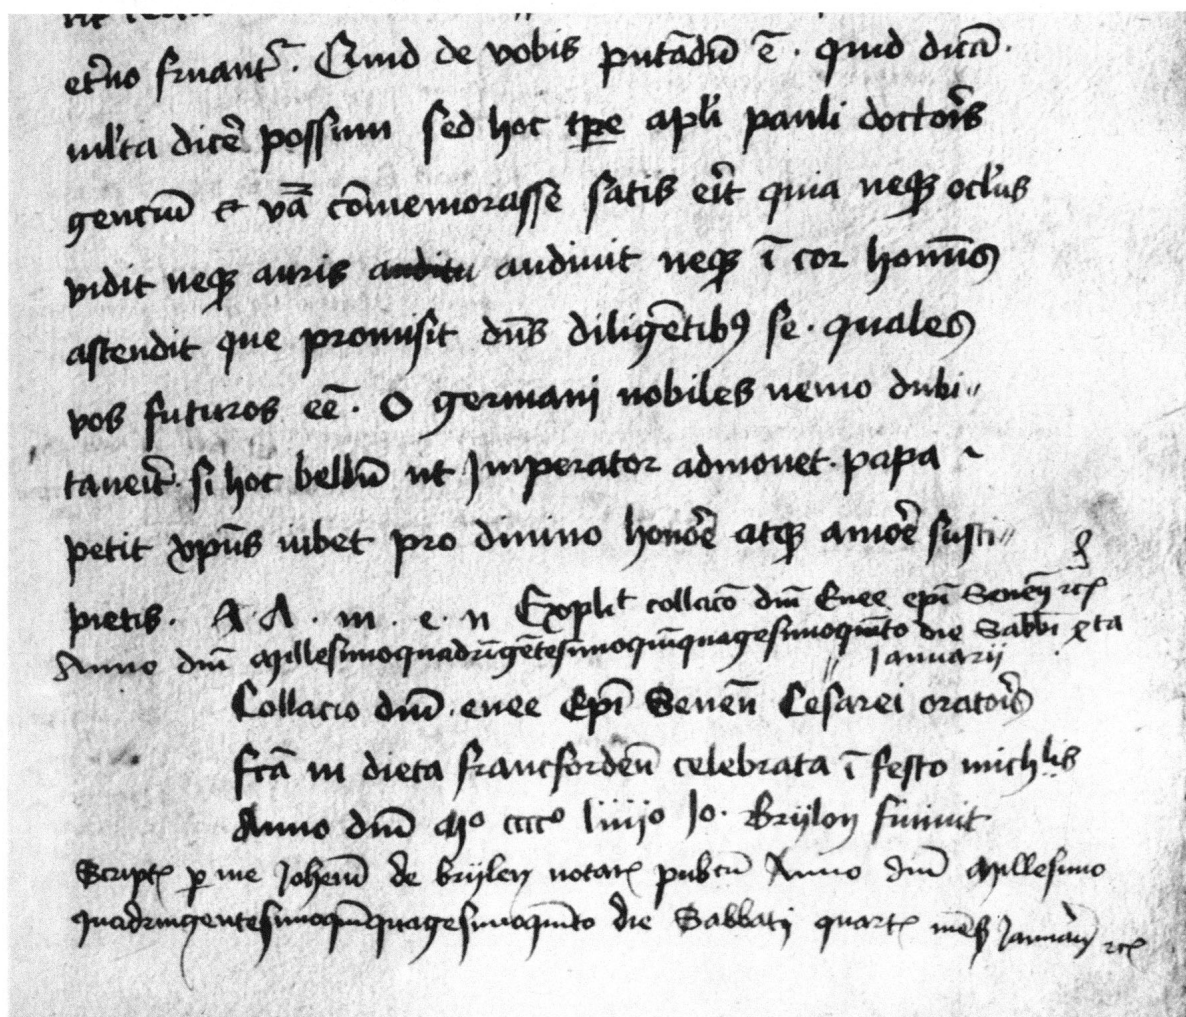 et̄no fruant᷑. Quid de vobis putādū ē. quid dicā.
ml̄ta dicē possum sed hoc tp̄e apl̄i pauli doctoris
genciū et vā cōmemorasse satis eīt quia neqꝫ ocl̄us
vidit neqꝫ auris auditu audiuit neqꝫ ī cor homīs
ascendit que promisit dn̄s diligētibꝰ se. quales
vos futuros eē. O germani nobiles nemo dubi〃
taueīt. si hoc bellū ut Imperator admonet. papa
petit xp̄us iubet pro diuino honoē atqꝫ amoē susci〃
pietis. A A. m. e. n Explit collacō dn̄i Enee ep̄i Seneñ ꝛcꝭ
Anno dn̄i Millesimoquadrīgētesimoquīquagesimoquīto die Sabbī xta
Januarij
Collacio dn̄i. enee Ep̄i Seneñ Cesarei oratoris
fc̄a in dieta francfordeñ celebrata ī festo mich̄lis
Anno dn̄i Mº ccccº liiijº Jo. Brijlon finiuit
Scriptꝭ ꝑ me Joheñi de brijlen notarꝭ publicū Anno dn̄i Millesimo
quadringentesimoquīquagesimoquīto die Sabbati quartꝭ mēsꝭ Januarij ꝛcꝭ